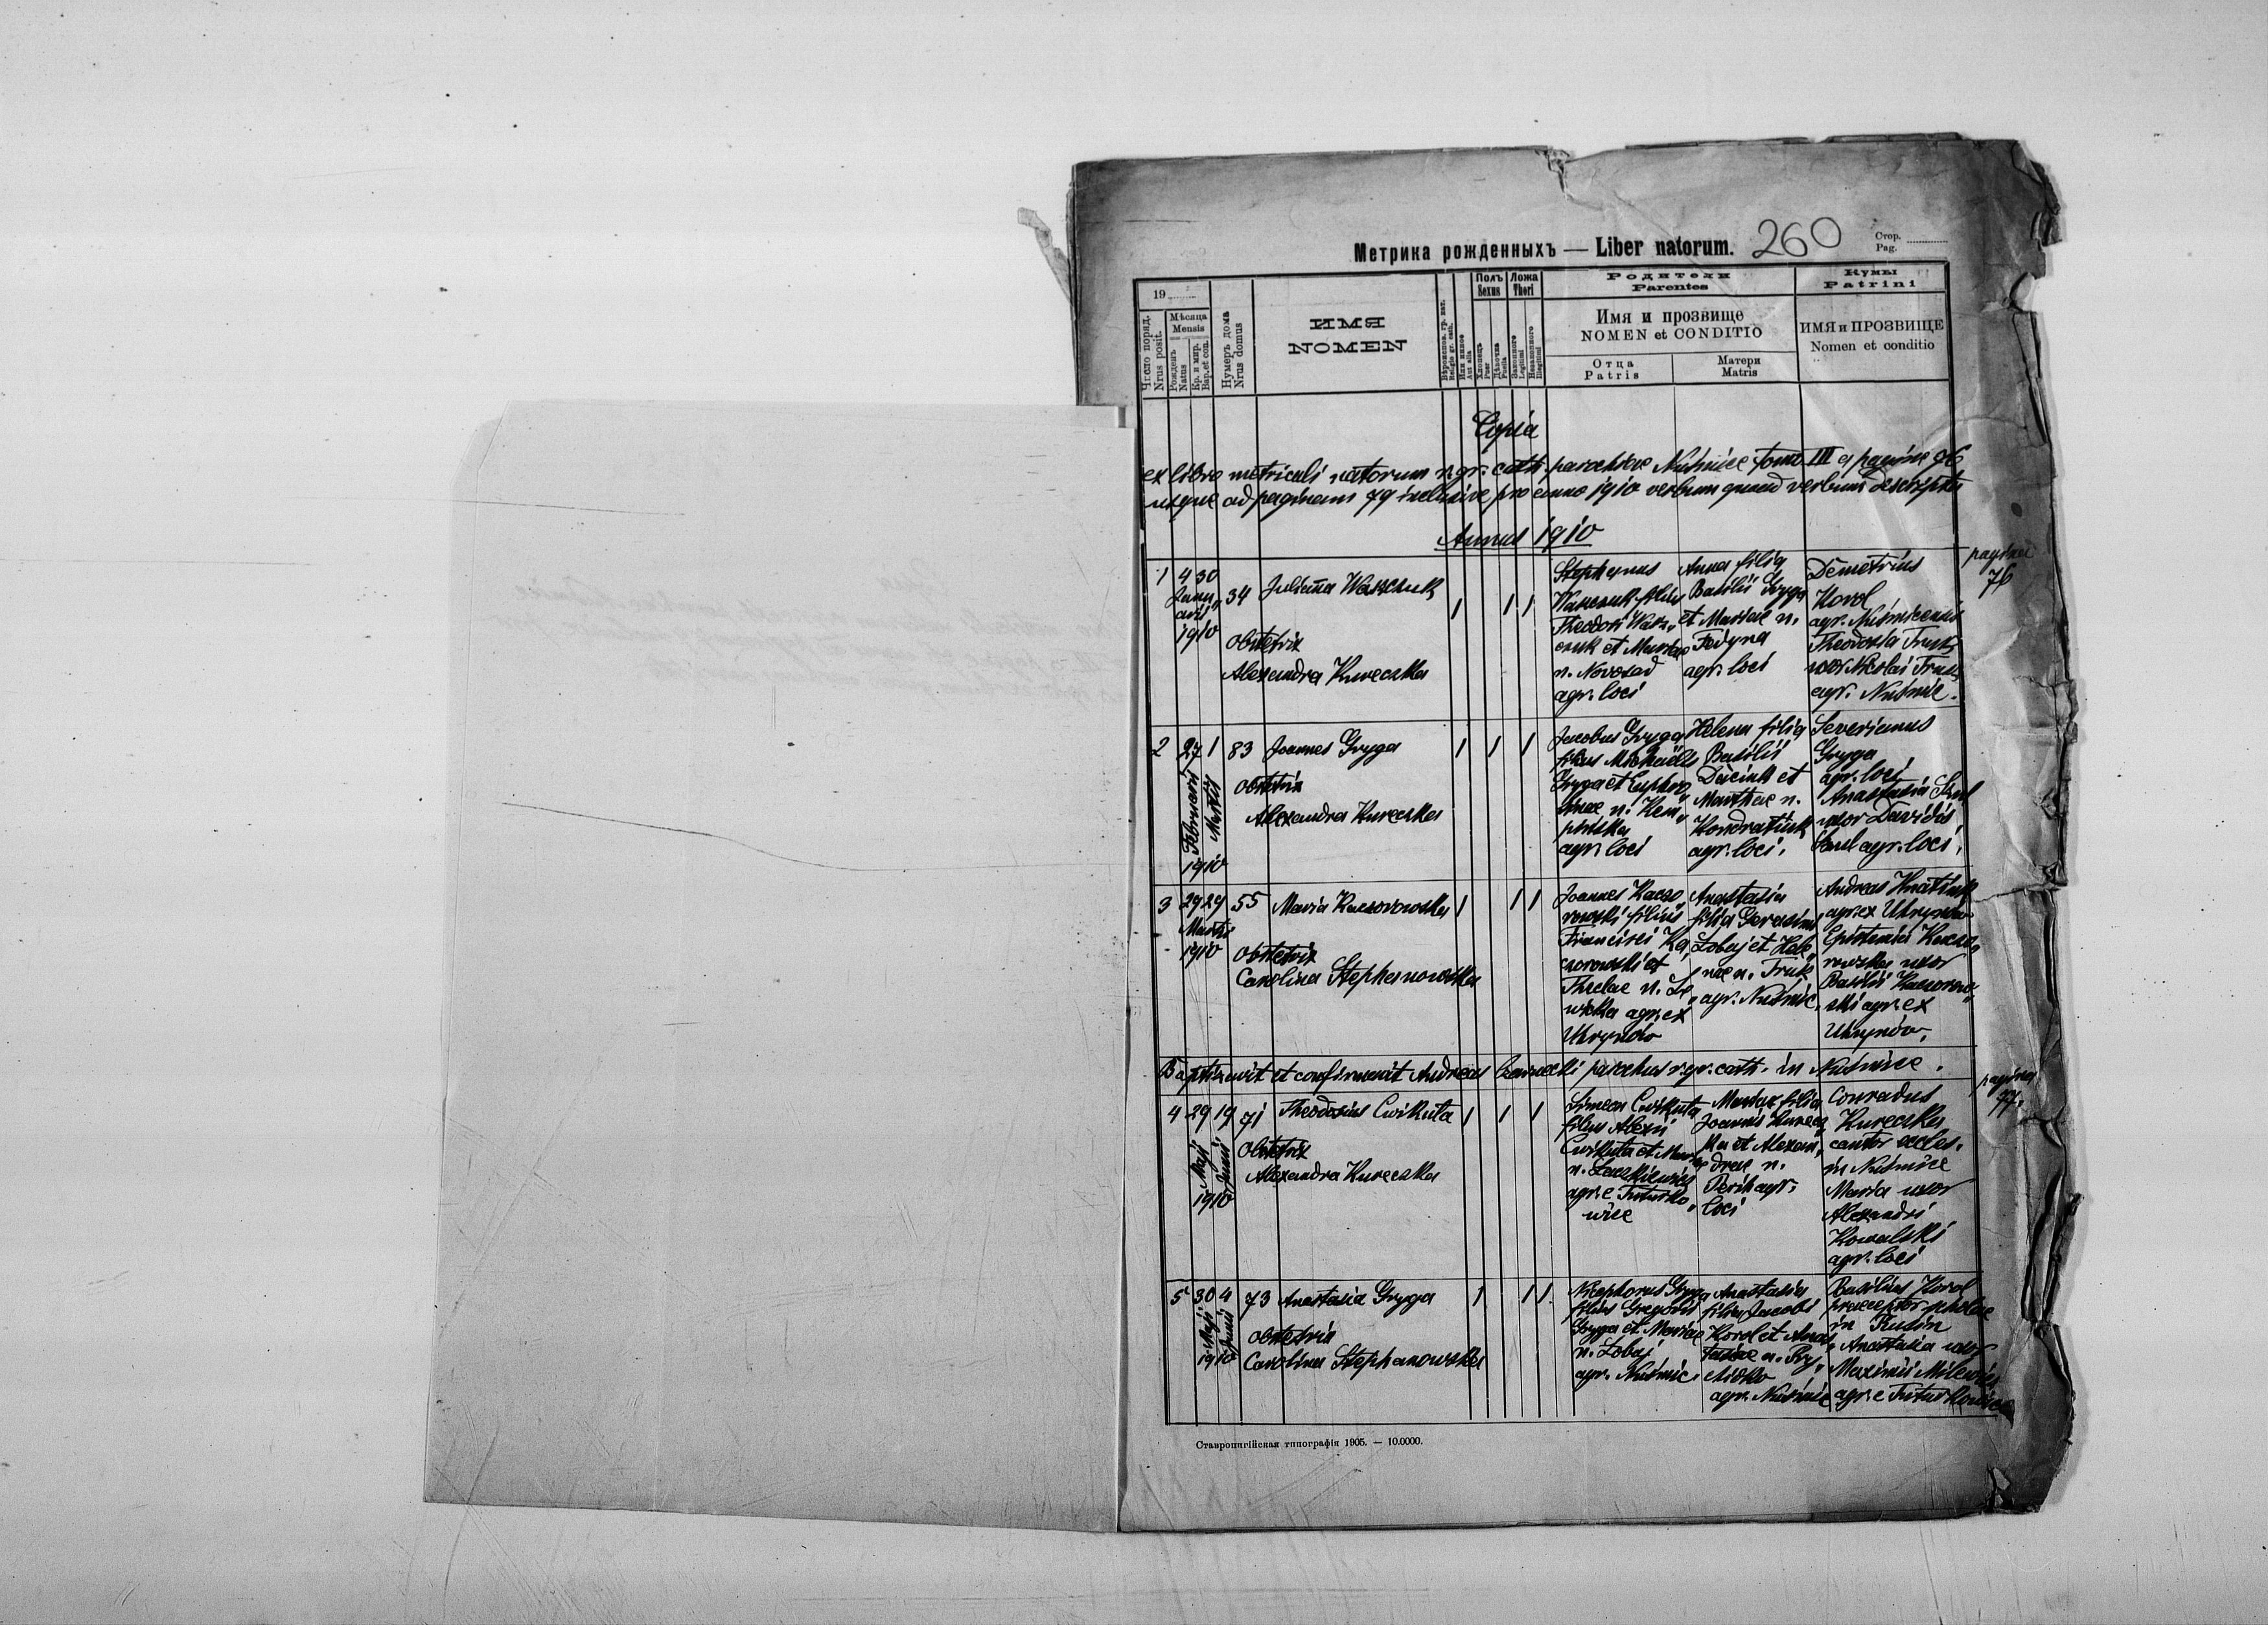 Метрика рожденныхъ — Liber natorum. 260
Стор.
Pag.
19
Число поряд.
Nrus posit.
Мѣсяца
Mensis
Рожденъ
Natus
Кр. и мир.
Bap. et con.
Нумеръ дома
Nrus domus
ИМЯ
NOMEN
Полъ
Sexus
Ложа
Thori
Родители
Parentes
Имя и прозвище
NOMEN et CONDITIO
Отца
Patris
Матери
Matris
Кумы
Patrini
ИМЯ и ПРОЗВИЩЕ
Nomen et conditio
Copia
ex libro metricali natorum r. gr. cath. parochiae Nuśmice tomo III a pagina 76
usque ad paginam 79 inclusive pro anno 1910 verbum quoad verbum descripta
Annus 1910
pagina
76
1 4 30
Janu„
arii
1910
34 Juliana Waszczuk
Obstetrix
Alexandra Kureczka
1 1 1
Stephanus
Waszczuk filius
Theodori Wasz„
czuk et Mariae
n. Nowosad
agr. loci
Anna filia
Basilii Gryga
et Mariae n.
Fedyna
agr. loci
Demetrius
Korol
agr. Nuśmicensis
Theodosia Truś
uxor Nicolai Truś
agr. Nuśmic.
2 27 1 83 Joannes Gryga
Februarii
Martii
1910
Obstetrix
Alexandra Kureczka
1 1 1
Jacobus Gryga
filius Michaelis
Gryga et Euphro„
sinae n. Kem„
pińska
agr. loci
Helena filia
Basilii
et
Marthae n.
Kondratiuk
agr. loci.
Severianus
Gryga
agr. loci
Anastasia
uxor Davidis
agr. loci.
3 29 29 55 Maria Kaczorowska
Martii
1910
Obstetrix
Carolina Stephanowska
1 1 1
Joannes Kaczo„
rowski filius
Francisci Ka„
czorowski et
Theclae n.
agr. ex
Uhrynów
Anastasia
filia Gerasimi
Łobaj et Hele„
nae n. Truś
agr. Nuśmic.
Andreas Hnatiuk
agr. ex Uhrynów
Epistemia Kaczo„
rowska uxor
Basilii Kaczorow„
ski agr. ex
Uhrynów.
Baptisavit et confirmavit Andreas Czarnecki parochus r. gr. cath. in Nuśmice.
pagina
77.
4 29 19 71 Theodosius Cwikuta
Maji
Junii
1910
Obstetrix
Alexandra Kureczka
1 1 1
Simeon Cwikuta
filius Alexii
Cwikuta et Mariae
n. Laszkiewicz
agr. e Tuturko„
wice
Maria filia
Joannis Kurecz„
ka et Alexan„
drae n.
agr.
loci
Conradus
Kureczka
cantor eccles.
in Nuśmice
Maria uxor
Alexandri
Kowalski
agr. loci
5 30 4 73 Anastasia Gryga
Maji
Junii
1910
Obstetrix
Carolina Stephanowska
1 1 1
Nicephorus Gryga
filius Gregorii
Gryga et Mariae
n. Łobaj
agr. Nuśmic.
Anastasia
filia Jacobi
Korol et Anas„
tasiae n.
agr. Nuśmice
Basilius Korol
praeceptor scholae
in Rusin
Anastasia uxor
Maximii
agr. e Tuturkowice
Ставропигійская типографія 1905. — 10.0000.